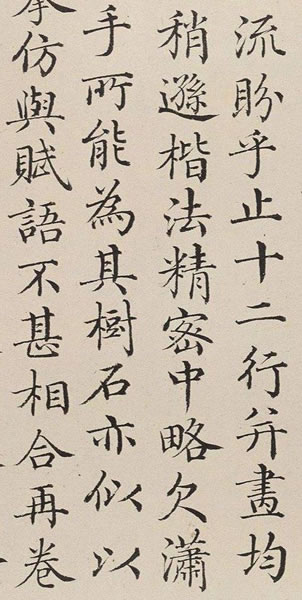 流盼乎止十二行并畫均
稍遜楷法精密中略欠瀟
手所能為其樹石亦似以
仿與賦語不甚相合再卷